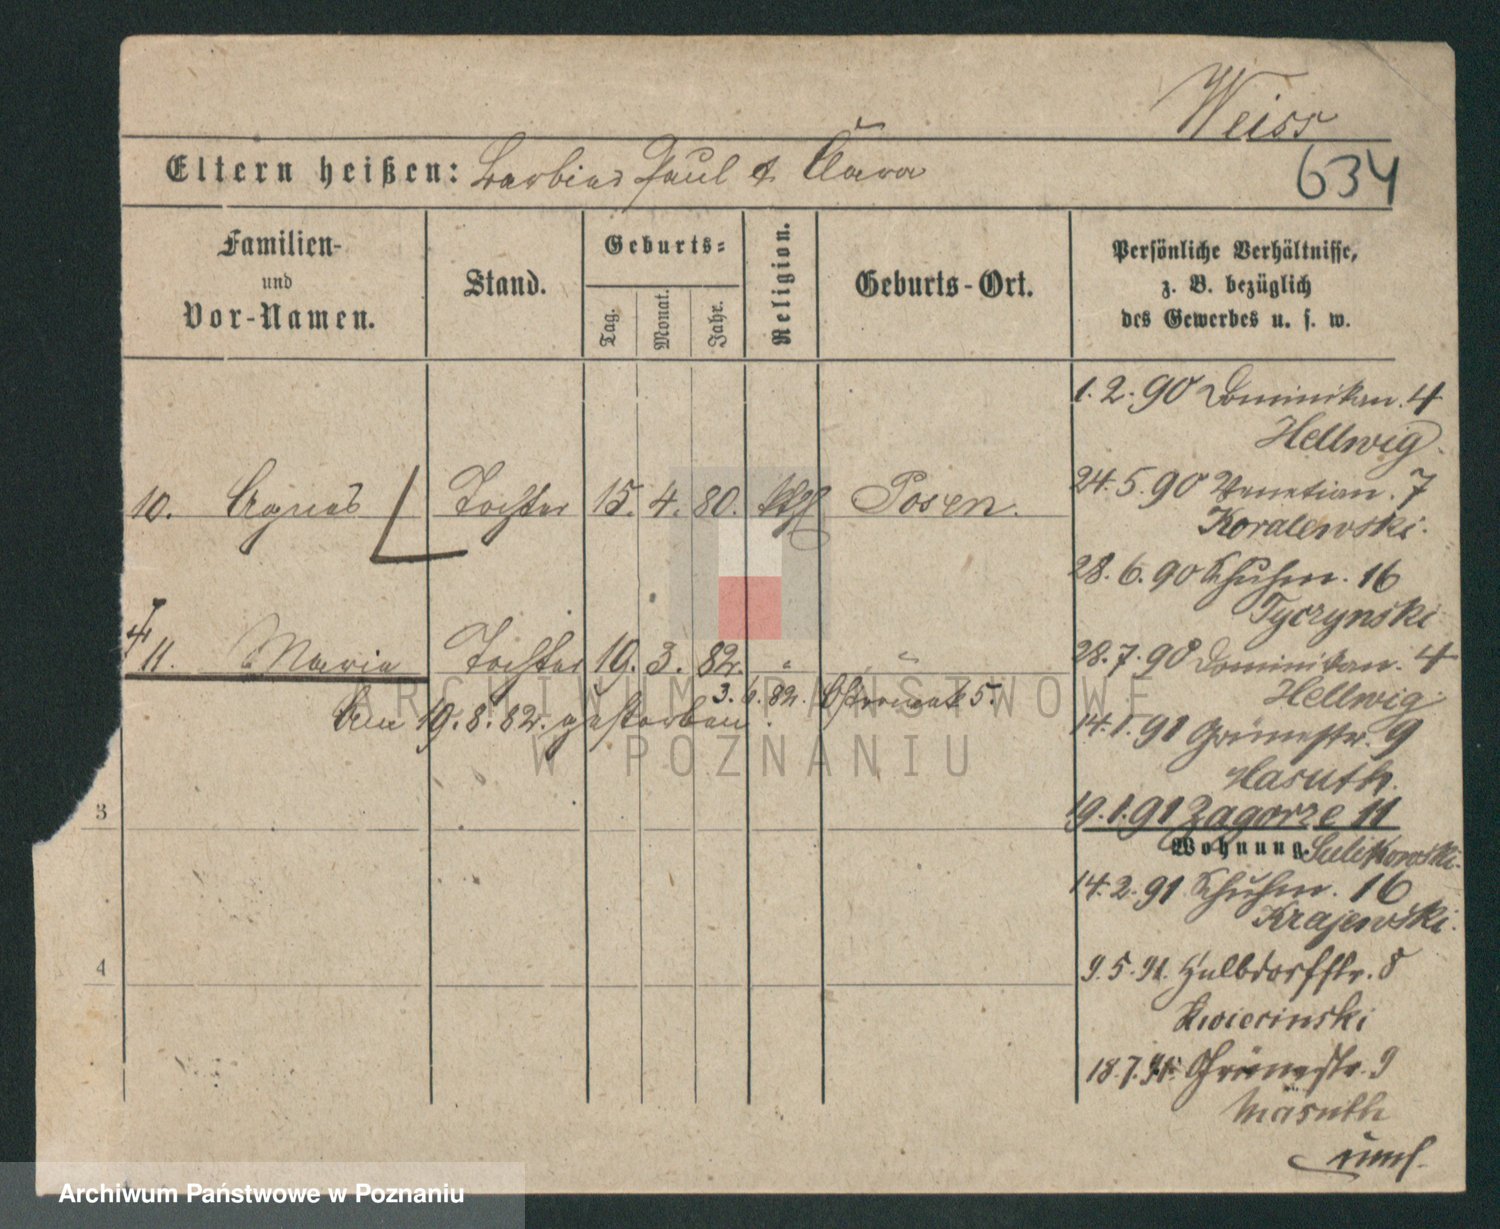 Weiss
Eltern heißen: Barbier Paul & Clara
634
Familien-
und
Vor-Namen.
Stand.
Geburts-
Tag.
Monat.
Jahr.
Religion.
Geburts-Ort.
Persönliche Verhältnisse,
z. B. bezüglich
des Gewerbes u. s. w.
10. Agnes Tochter 15. 4. 80. kth Posen.
11. Maria Tochter 19. 3. 82. " "
3. 6. 82. 5.
Am 19. 8. 82. gestorben.
3
4
1. 2. 90 Dominikan. 4
Hellwig.
24. 5. 90 Venetian. 7
Koralewski.
28. 6. 90 Schuhm. 16
Tyczynski
28. 7. 90 Dominikan. 4
Hellwig.
14. 1. 91 Grünestr. 9
Masuth.
19. 1. 91 Zagorze 11
Wohnung. Sulikowski.
14. 2. 91 Schuhm. 16
Krajewski.
9. 5. 91. Halbdorfstr. 8
Kwicinski
18. 7. 91. Grünestr. 9
Masuth
ARCHIWUM PAŃSTWOWE
W POZNANIU
Archiwum Państwowe w Poznaniu